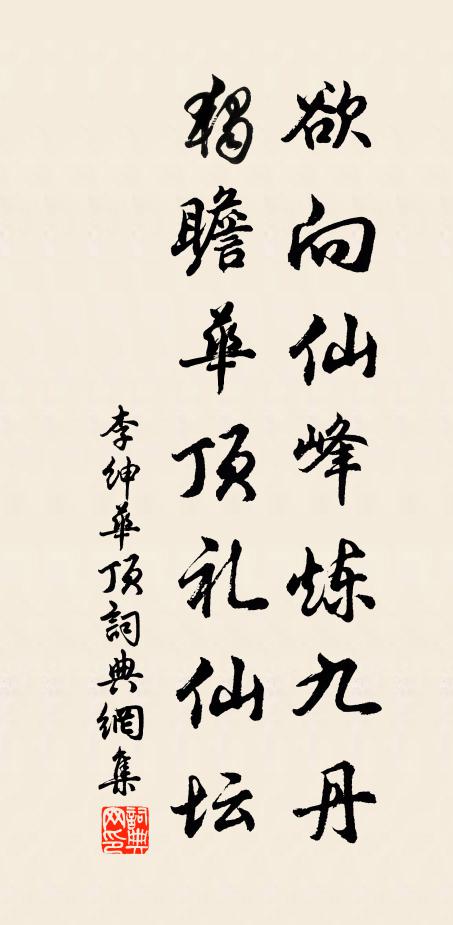 欲向仙峰炼九丹
独瞻華顶礼仙坛
李紳華顶詞典網集
詞典网印